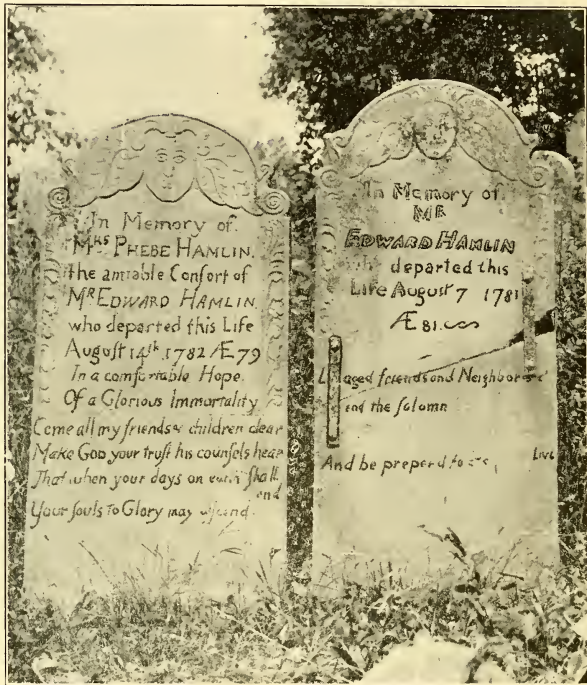 In Memory of
Mrs PHEBE HAMLIN.
the amiable Consort of
Mr EDWARD HAMLIN
who departed this Life
August 14th 1782 Æ 79
In a comfortable Hope.
Of a Glorious Immortality
Come all my friends & children dear
Make GOD your trust his counsels hear
That when your days on earth shall
end
Your souls to Glory may ascend.
In Memory of
MR
EDWARD HAMLIN
who departed this
Life August 7 1781
Æ 81.
aged friends and Neighbors
and the solomn
And be preperd to
LIVE